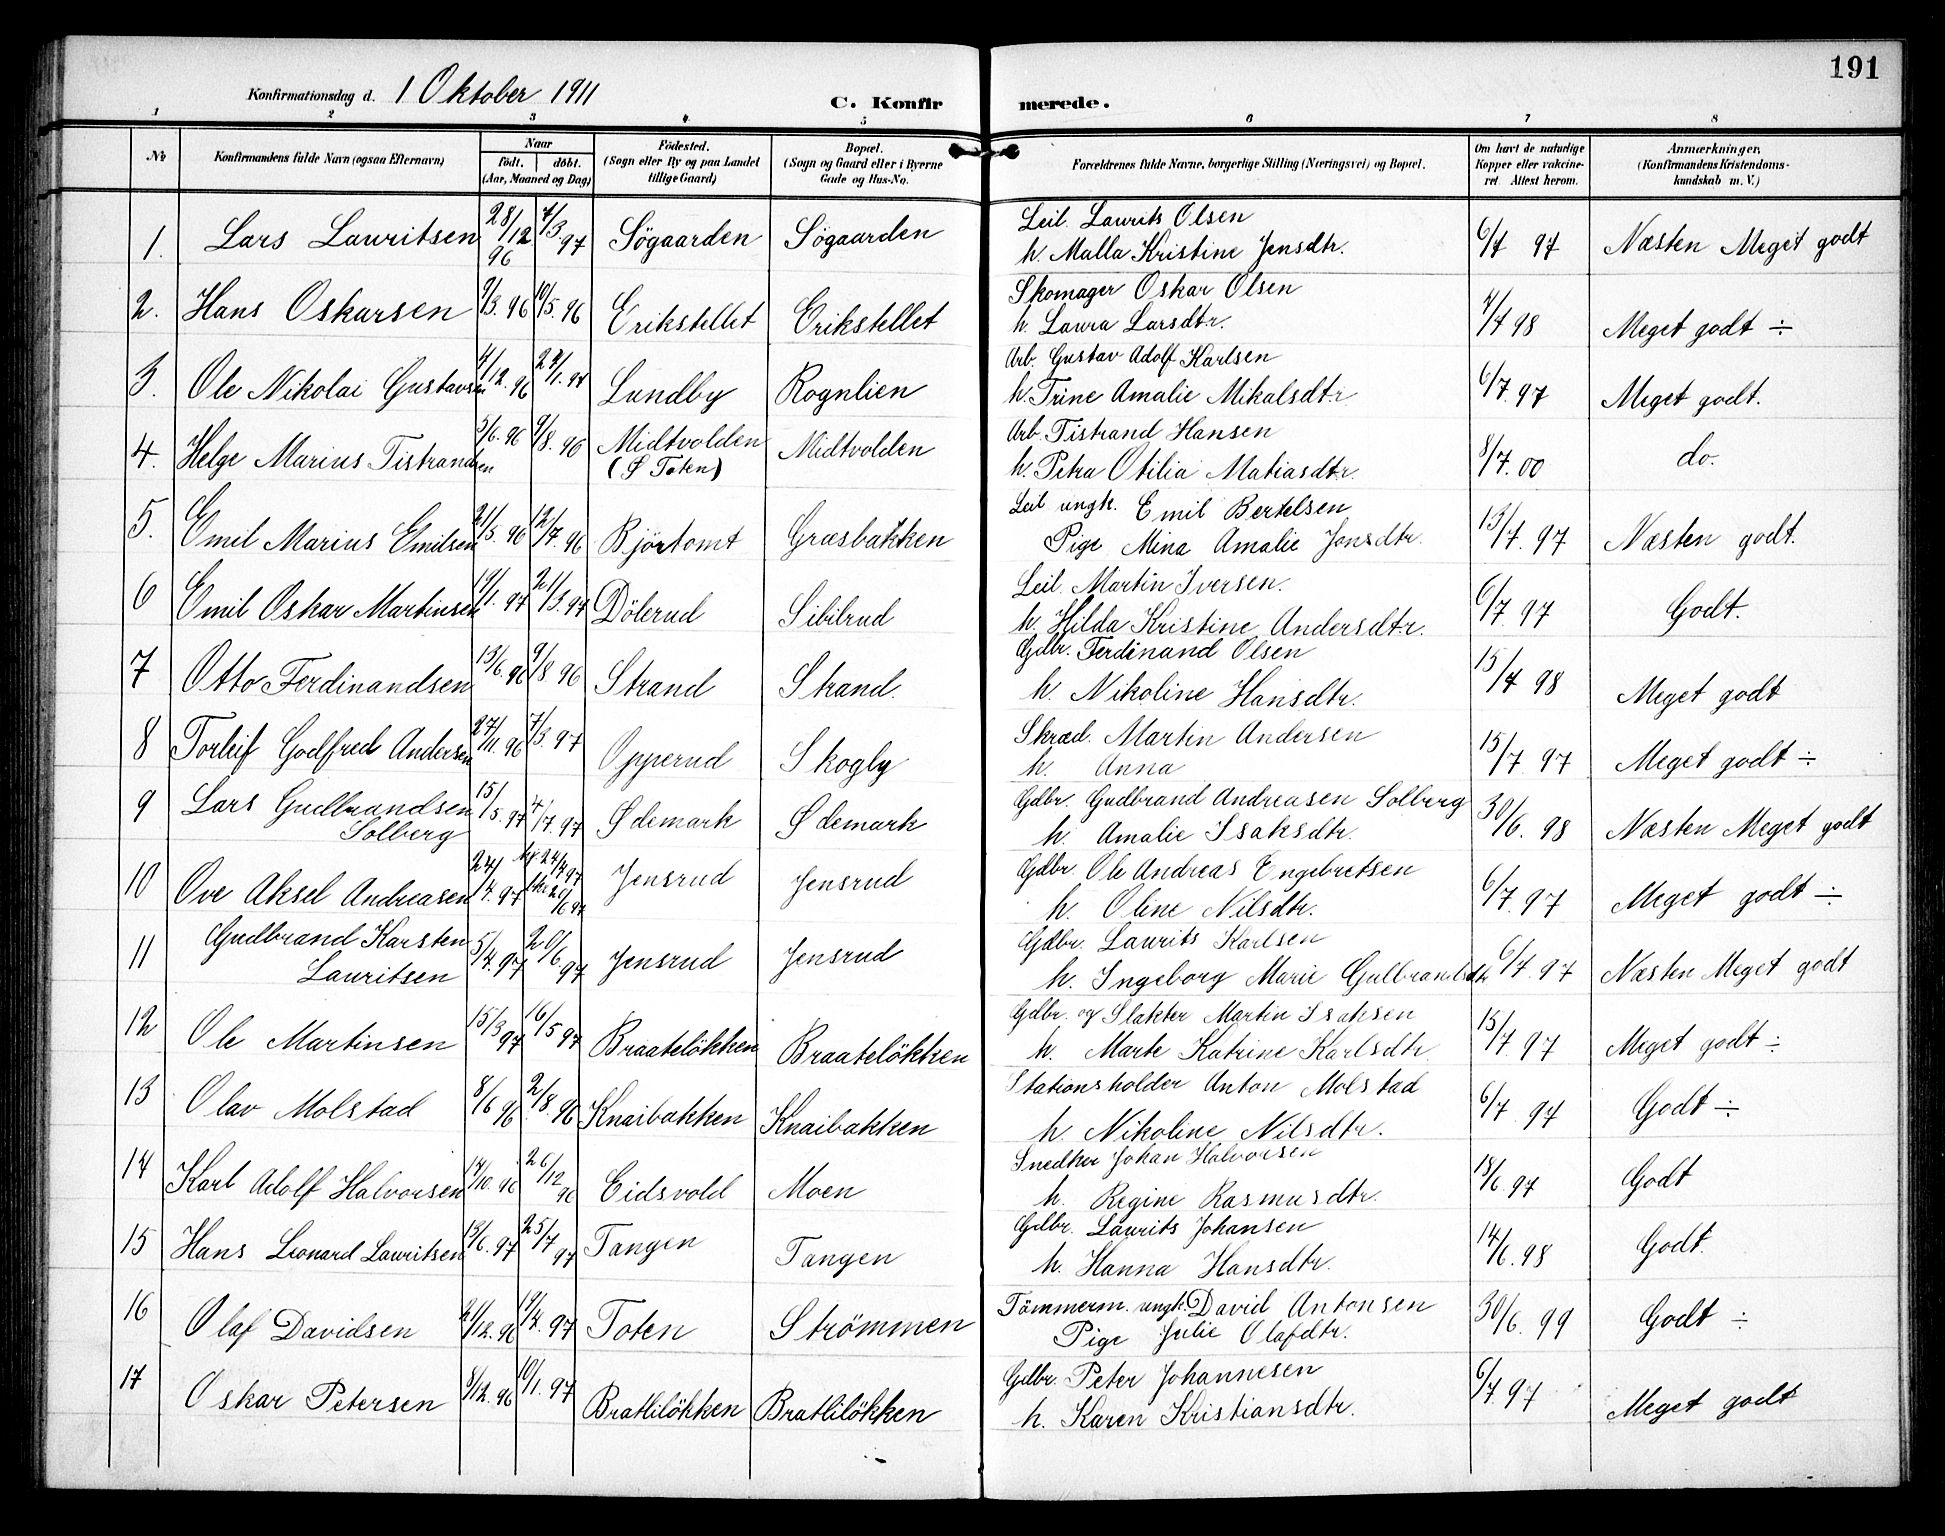 191
Konfirmationsdag d. 1 Oktober 1911
C. Konfirmerede.
1 2 3 4 5 6 7 8
No
Konfirmandens fulde Navn (ogsaa Efternavn)
Naar
födt. döbt.
(Aar, Maaned og Dag)
Födested.
(Sogn eller By og paa Landet
tillige Gaard)
Bopæl.
(Sogn og Gaard eller i Byerne
Gade og Hus-No.
Forældrenes fulde Navne, borgerlige Stilling (Næringsvei) og Bopæl.
Om havt de naturlige
Kopper eller vakcine-
ret. Attest herom.
Anmærkninger,
(Konfirmandens Kristendoms-
kundskab m. V.)
1. Lars Lauritsen 28/12 96 7/3 97 Sögaarden Sögaarden Leil. Laurits Olsen
h. Malla Kristine Jensdtr. 6/7 97 Næsten Meget godt
2. Hans Oskarsen 9/3. 96 10/5. 96 Erikstellet Erikstellet Skomager Oskar Olsen
h. Laura Larsdtr. 7/7 98 Meget godt ÷
3. Ole Nikolai Gustavsen 4/12. 96 Lundby Rognlien Arb. Gustav Adolf Karlsen
h. Trine Amalie Mikalsdtr. 6/7. 97 Meget godt.
4. Helge Marius Tistrandsen 5/6. 96 9/8. 96 Midtvolden
(Ø Toten) Midtvolden Arb. Tistrand Hansen
h. Petra Otilia Matiasdtr. 8/7. 00 do.
5. Emil Marius Emilsen 21/5. 96 12/7. 96 Bjørtomt Græsbakken Leil ungk. Emil Bertelsen
Pige Mina Amalie Jonsdtr. 13/7. 97 Næsten godt.
6 Emil Oskar Martinsen 19/1. 97 21/3. 97 Dölerud Sibilrud Leil. Martin Iversen.
h. Hilda Kristine Andersdtr. 6/7. 97 Godt.
7 Otto Ferdinandsen 13/6. 96 9/8 96 Strand Strand. Gdbr. Ferdinand Olsen
h. Nikoline Hansdtr. 15/7 98 Meget godt
8 Torleif Godfred Andersen 27/11. 96 7/3. 97 Opperud Skogly Skræd. Martin Andersen
h. Anna 15/7. 97 Meget godt ÷
9 Lars Gudbrandsen
Solberg 15/5. 97 4/7. 97 Ødemark Ødemark Gdbr. Gudbrand Andreasen Solberg
h. Amalie Isaksdtr. 30/6. 98 Næsten Meget godt
10 Ove Aksel Andreasen 24/4. 97 24/4 97 Jensrud Jensrud Gdbr Ole Andreas Engebretsen
h. Oline Nilsdtr. 6/7. 97 Meget godt ÷
11 Gudbrand Karsten
Lauritsen 5/4. 97 20/6 97 Jensrud Jensrud Gdbr. Laurits Karlsen
h. Ingeborg Marie Gulbrandsdtr 6/7. 97 Næsten Meget godt
12 Ole Martinsen 15/3 97 16/5 97 Braatelökken Braatelökken Gdbr. og Slakter Martin Isaksen
h. Marte Katrine Karlsdtr 15/7. 97 Meget godt ÷
13 Olav Molstad 8/6 96 2/8. 96 Knaibakken Knaibakken Stationsholder Anton Molstad
h. Nikoline Nilsdtr. 6/7. 97 Godt ÷
14 Karl Adolf Halvorsen 14/10. 96 26/12 96 Eidsvold Moen Snedker Johan Halvorsen
h. Regine Rasmusdtr. 18/6. 97 Godt
15 Hans Leonard Lauritsen 13/6. 97 25/7 97 Tangen Tangen Gdbr. Laurits Johansen
h. Hanna Hansdtr. 14/6. 98 Godt.
16 Olaf Davidsen 21/12. 96 19/4. 97 Toten Strömmen Tömmerm. ungk. David Antonsen
Pige Julie Olafdtr. 30/6. 99 Godt ÷
17 Oskar Petersen 8/12. 96 10/1. 97 Bratlilökken Bratlilökken Gdbr. Peter Johannesen
h. Karen Kristiansdtr. 6/7 97 Meget godt